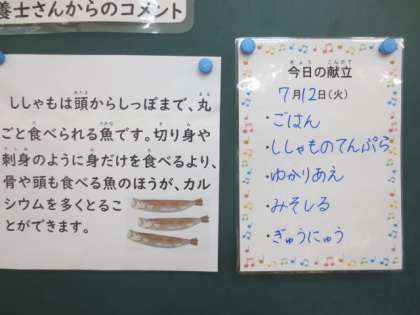 養士さんからのコメント
ししゃもは頭からしっぽまで、丸
ごと食べられる魚です。切り身や
刺身のように身だけを食べるより、
骨や頭も食べる魚のほうが、カル
シウムを多くとるこ
とができます。
今日の献立
7月12日(火)
・ごはん
・ししゃものてんぷら
・ゆかりあえ
・みそしる
・ぎゅうにゅう